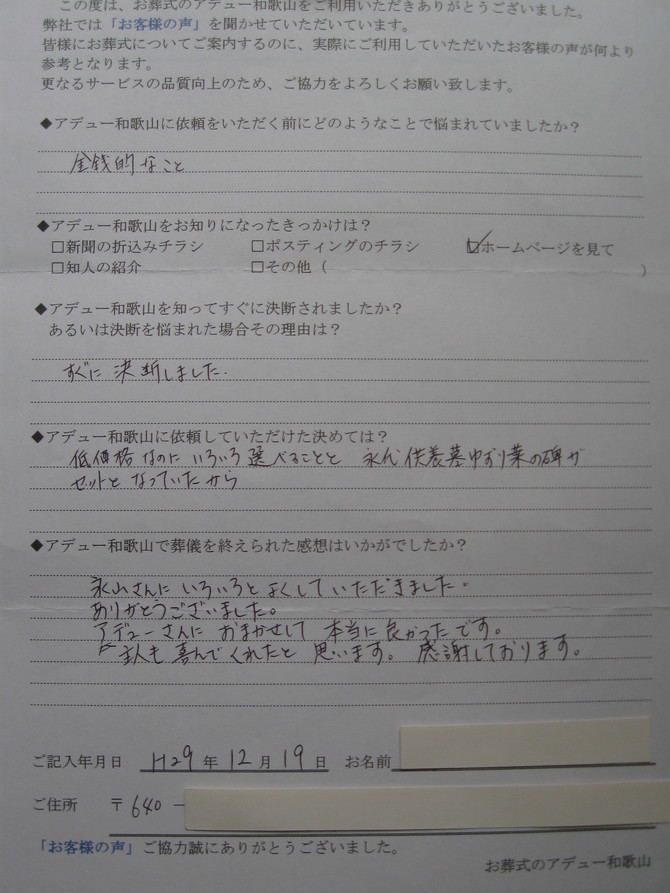 この度は、お葬式のアデュー和歌山をご利用いただきありがとうございました。
弊社では「お客様の声」を聞かせていただいています。
皆様にお葬式についてご案内するのに、実際にご利用していただいたお客様の声が何より
参考となります。
更なるサービスの品質向上のため、ご協力をよろしくお願い致します。
◆アデュー和歌山に依頼をいただく前にどのようなことで悩まれていましたか？
金銭的なこと
◆アデュー和歌山をお知りになったきっかけは？
□新聞の折込みチラシ □ポスティングのチラシ ☑ホームページを見て
□知人の紹介 □その他（ ）
◆アデュー和歌山を知ってすぐに決断されましたか？
あるいは決断を悩まれた場合その理由は？
すぐに決断しました.
◆アデュー和歌山に依頼していただけた決めては？
低価格なのに いろいろ選べることと 永代供養墓ゆずり葉の碑が
セットと なっていたから
◆アデュー和歌山で葬儀を終えられた感想はいかがでしたか？
永山さんに いろいろと よくして いただきました.
ありがとうございました。
アデューさんに おまかせして 本当に良かったです。
主人も 喜んでくれたと 思います。 感謝しております。
ご記入年月日 H29年 12月 19日 お名前
ご住所 〒640-
「お客様の声」ご協力誠にありがとうございました。
お葬式のアデュー和歌山